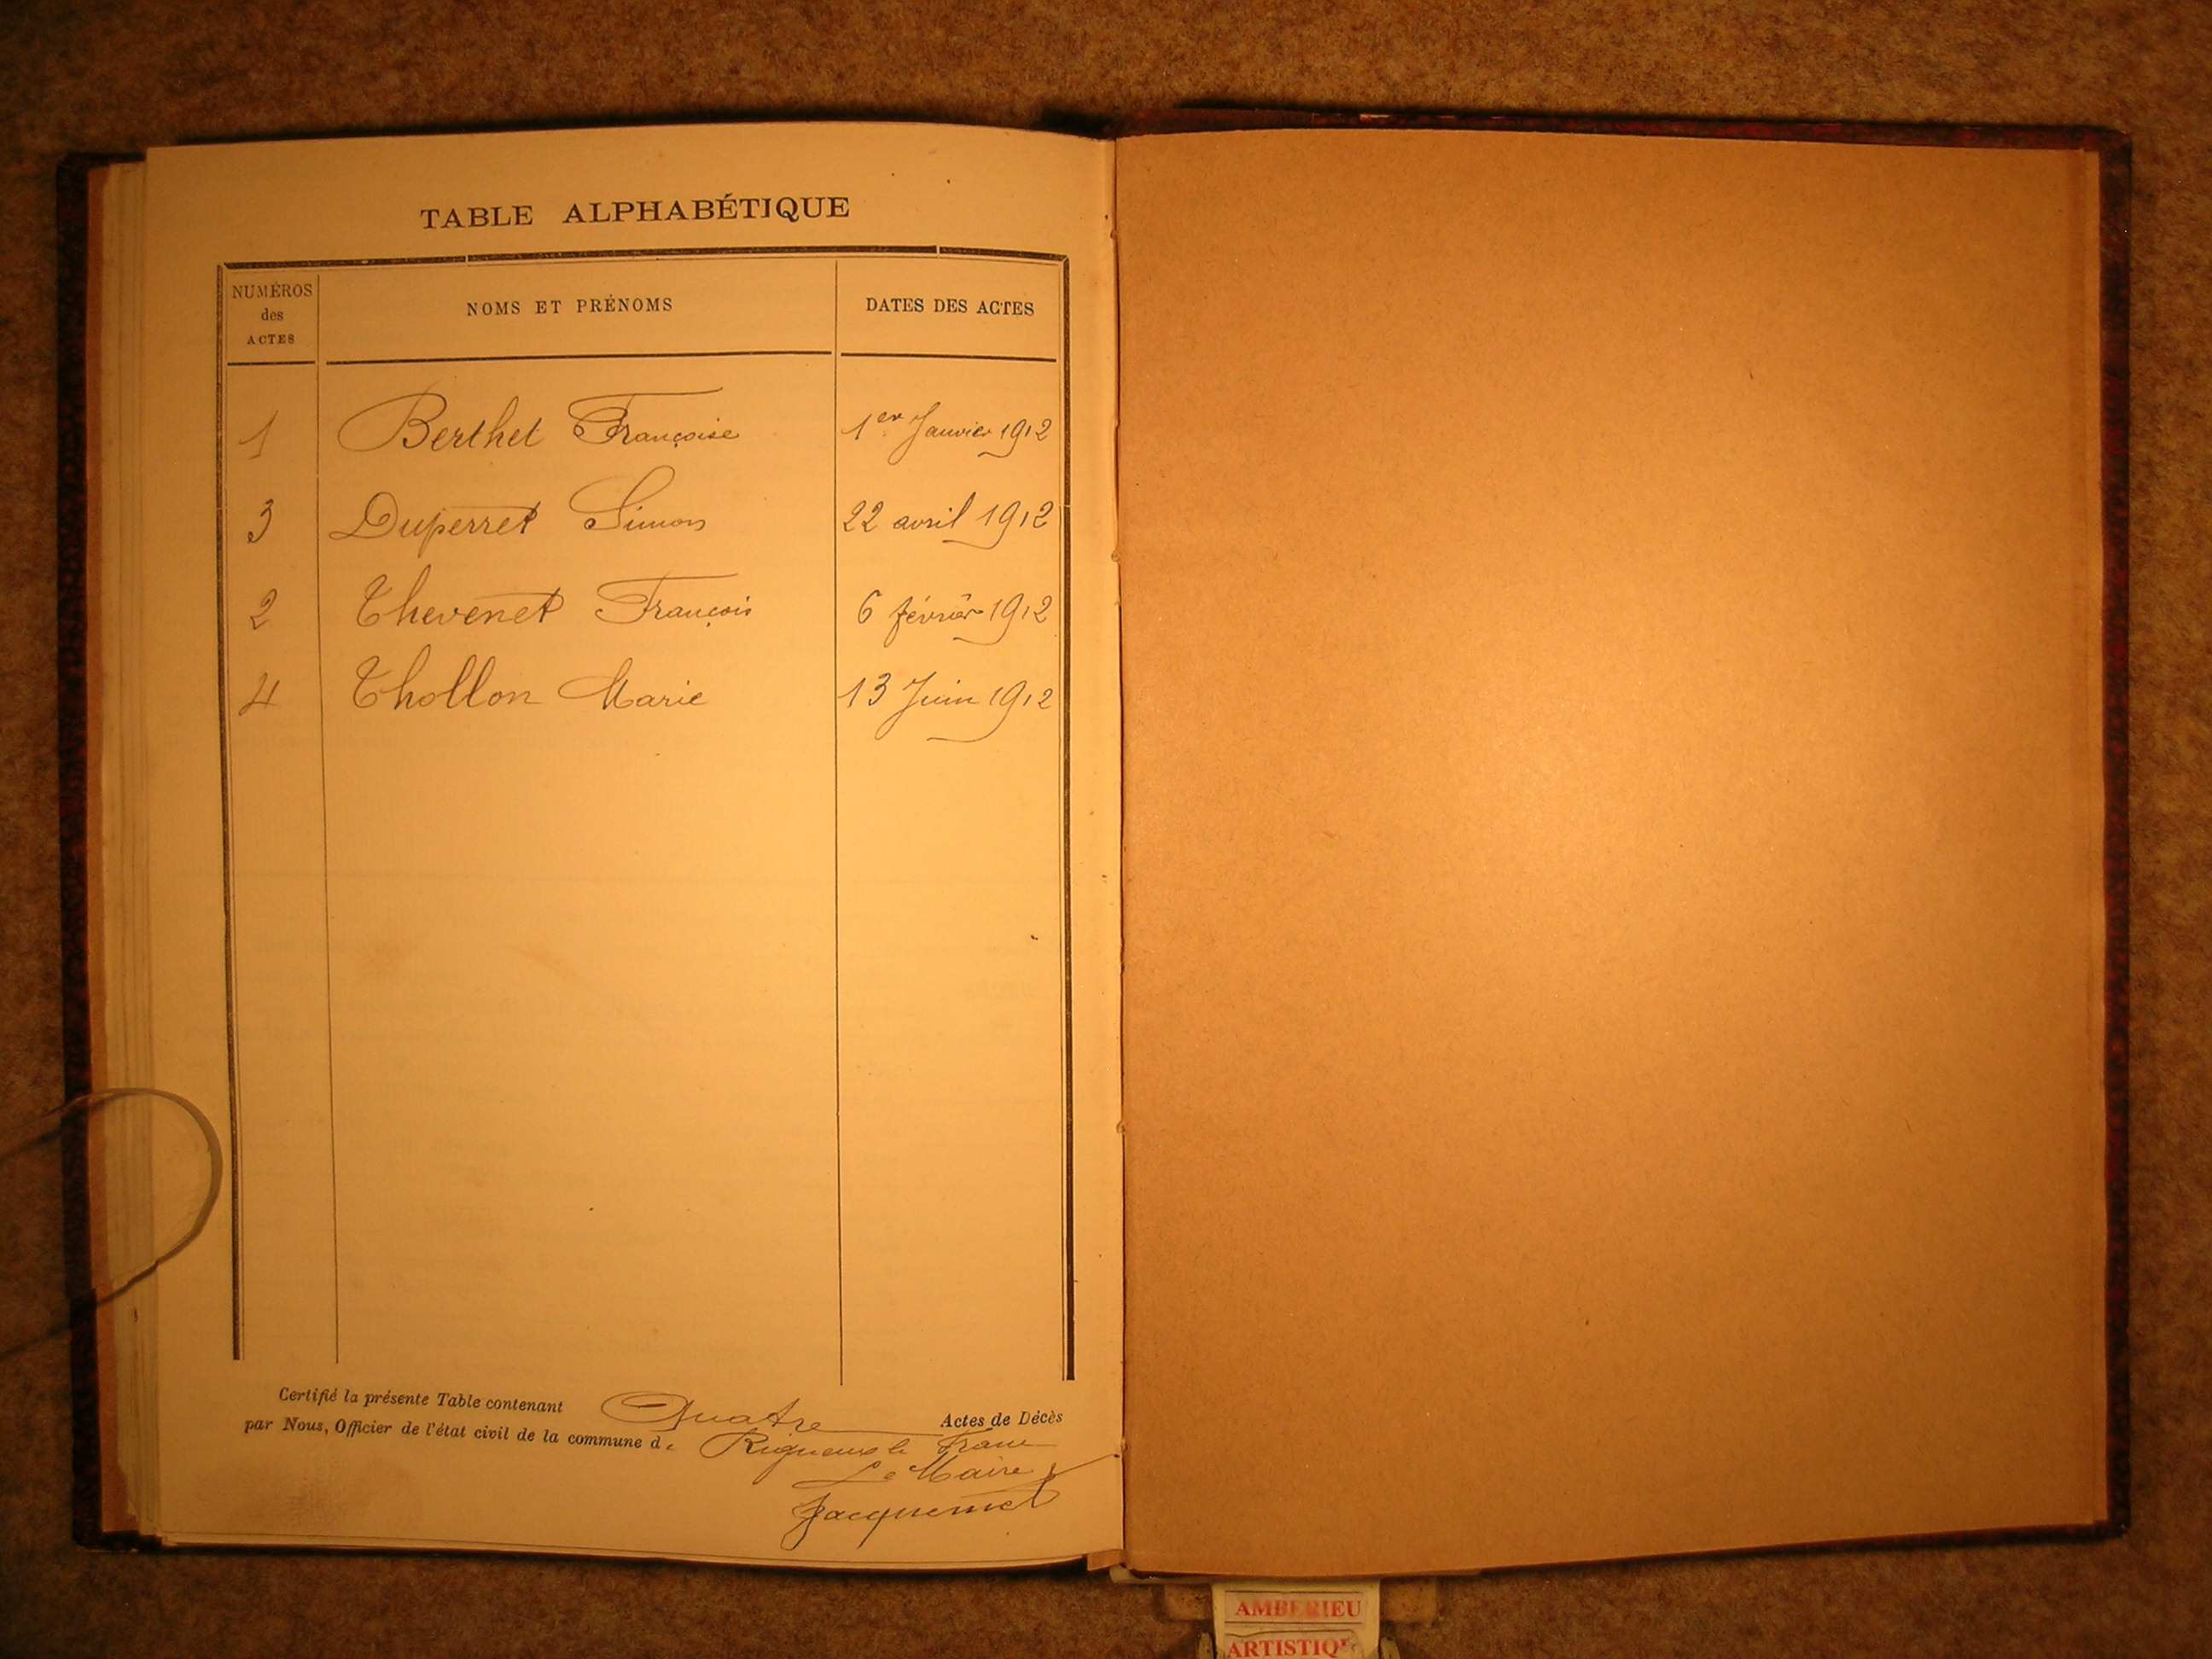 TABLE ALPHABÉTIQUE
NUMÉROS des ACTES NOMS ET PRÉNOMS DATES DES ACTES
1 Berthet Françoise 1er Janvier 1912
3 Duperret Simon 22 avril 1912
2 Thevenet François 6 février 1912
4 Thollon Marie 13 Juin 1912
Certifié la présente Table contenant Quatre Actes de Décès
par Nous, Officier de l'état civil de la commune de Rigneux le Franc
Le Maire
Jacquemet
AMBERIEU
ARTISTIQ